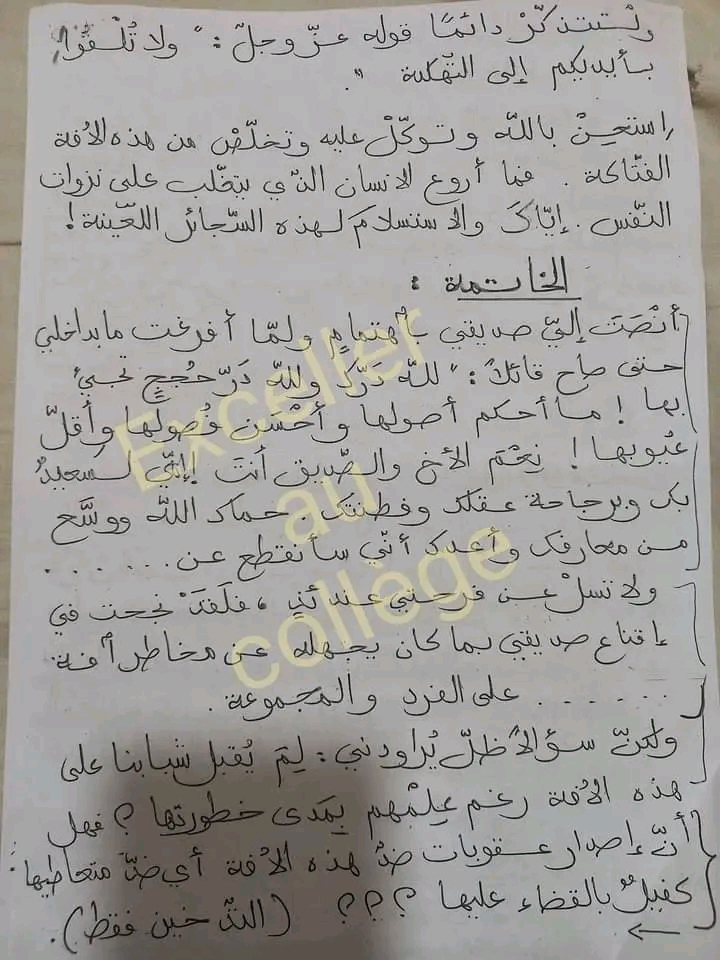 ولْتتذكّرْ دائمًا قوله عزّ وجلّ : " ولا تُلْقُوا
بأيديكم إلى التّهلكة ".
اِستعِنْ باللّه وتوكّلْ عليه وتخلّصْ من هذه الآفة
الفتّاكة . فما أروع الانسان الذي يتغلّب على نزوات
النّفس . إيّاكَ والاستسلامَ لهذه السّجائر اللّعينة !
الخاتمة :
أنْصَتَ إليّ صديقي بٱهتمامٍ ولمّا أفرغت ما بداخلي
حتى صاح قائلاً : " للّه درّك وللّه دَرّ حُججٍ تجيءُ
بها ! ما أحكم أصولها وأحْسَن فُصولها وأقلّ
عُيوبها ! نِعْمَ الأخ والصّديق أنتَ ! إنّي لسعيدٌ
بك وبرجاحة عقلك وفطنتك . حماك اللّه ووسَّع
من معارفك وأعدك أنّي سأنقطع عن ......
ولا تسلْ عن فرحتي عندئذٍ ، فلَقدْ نجحت في
إقناع صديقي بما كان يجهله عن مخاطر آفة
....... على الفرد والمجموعة .
ولكنّ سؤالاً ظلّ يُراودني : لِمَ يُقبل شبابنا على
هذه الآفة رغم عِلمهم بِمَدى خطورتها ؟ فهل
أنّ إصدار عقوبات ضدّ هذه الآفة أي ضدّ متعاطيها
كفيلٌ بالقضاء عليها ؟؟؟ (التدخين فقط).
Exceller
au
collège